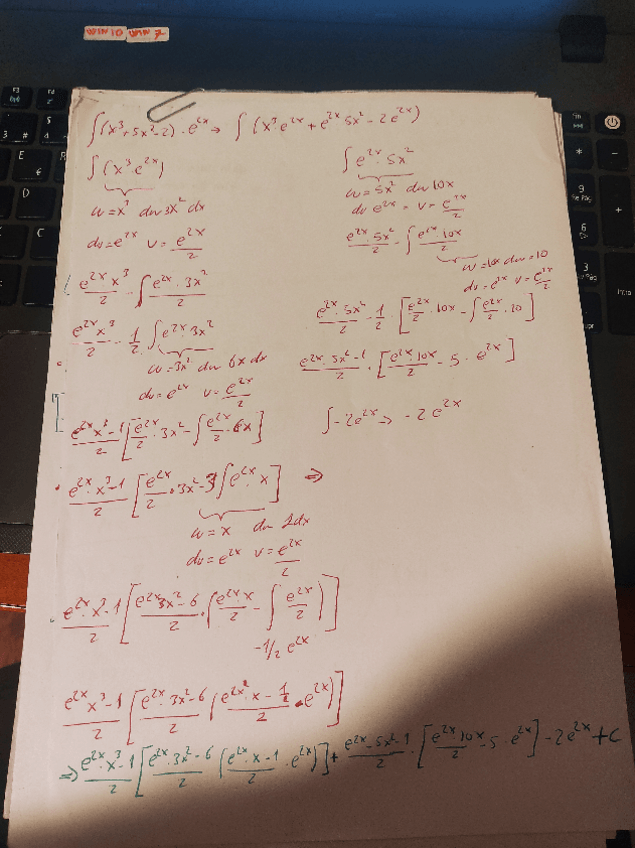 WIN 10 WIN 7
∫(x³+5x²-2)·e^2x → ∫(x³·e^2x + e^2x 5x² - 2e^2x)
∫(x³·e^2x)
u=x³ du 3x² dx
dv=e^2x v=e^2x/2
e^2x x³/2 - ∫e^2x·3x²/2
e^2x x³/2 - 1/2 ∫e^2x 3x²
u=3x² du 6x dx
dv=e^2x v=e^2x/2
e^2x x³-1/2 [e^2x/2·3x² - ∫e^2x/2·6x]
e^2x·x³-1/2 [e^2x/2·3x²-3∫e^2x·x] ⇒
u=x du 1dx
dv=e^2x v=e^2x/2
e^2x·x³-1/2 [e^2x 3x²-6/2·(e^2x x/2 - ∫e^2x/2)]
-1/2 e^2x
e^2x x³-1/2 [e^2x·3x²-6/2
∫e^2x·5x²
u=5x² du 10x
dv e^2x = v=e^2x/2
e^2x·5x²/2 - ∫e^2x 10x/2
u=10x du=10
dv=e^2x v=e^2x/2
e^2x·5x²/2 - 1/2·[e^2x/2·10x - ∫e^2x/2·10]
e^2x·5x²-1/2·[e^2x 10x/2 - 5·e^2x]
∫-2e^2x ⇒ -2e^2x
⇒ e^2x·x³-1/2 [e^2x·3x²-6/2 (e^2x·x-1/2·e^2x)] + e^2x-5x²-1/2·[e^2x 10x/2-5·e^2x]-2e^2x+C